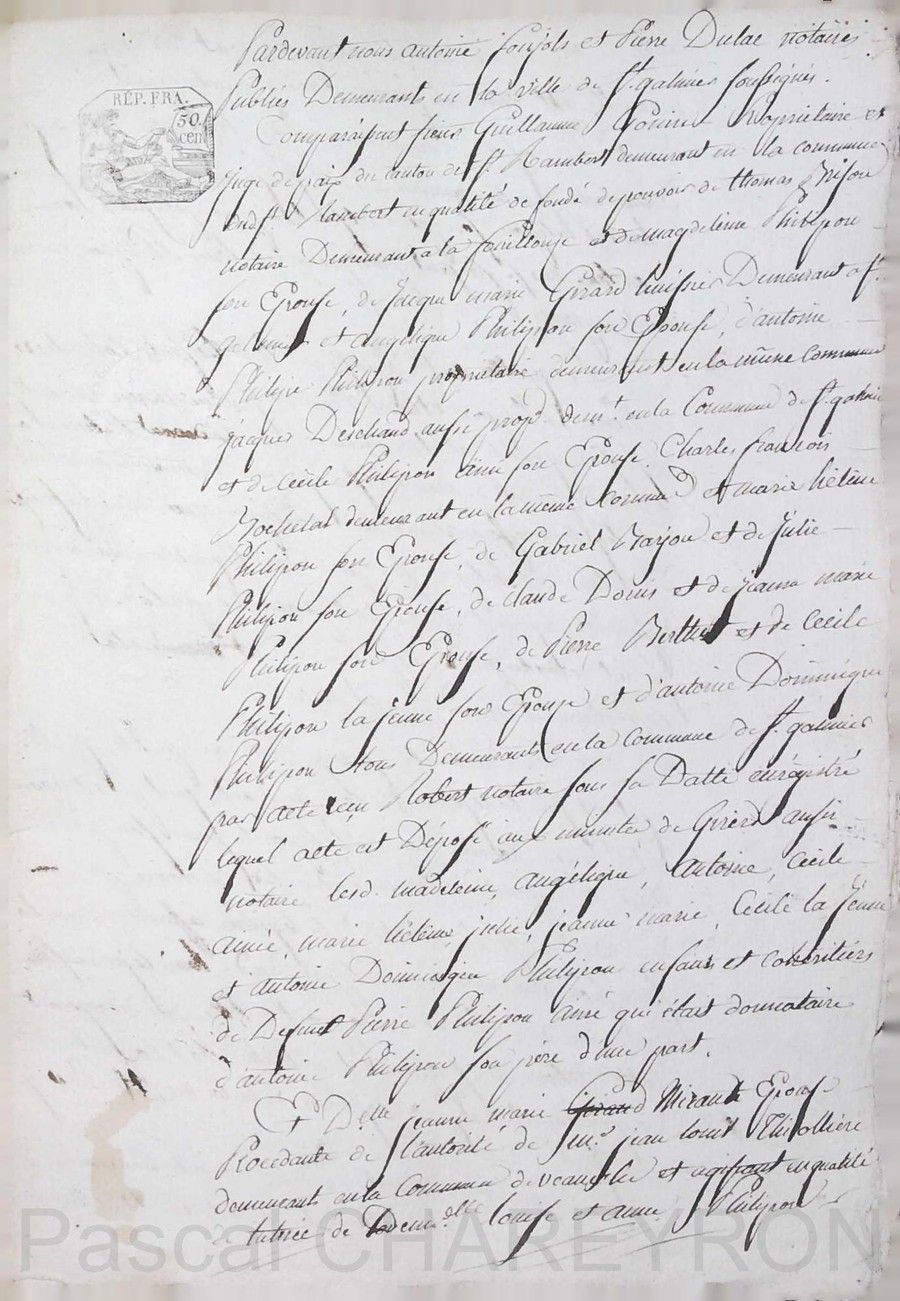 RÉP. FRA.
50
cen
Pardevant nous antoine foujols et Pierre Dulac notaires
Publics Demeurants en la ville de St. galmier soussignés.
Comparaissent sieur Guillaume Propriétaire et
juge de paix du canton de St. Rambert demeurant en la commune
dud. St. Rambert en qualité de fondé de pouvoir de thomas Brison
notaire Demeurant a la fouillouse et de magdeleine Philipon
son Epouse, de jacque marie Girard huissier Demeurant a St.
galmier et angélique Philipon son Epouse, d'antoine
Philipe Philipon propriétaire demeurant en la même Commune
jacques Deschaud aussi prop.re dem.t en la Commune de St. galmier
et de Cécile Philipon ainé son Epouse, Charles françois
Rochetal demeurant en la même Commune et marie hélène
Philipon son Epouse, de Gabriel Bayon et de julie
Philipon son Epouse, de claude Doris et de jeanne marie
Philipon son Epouse, de Pierre Berthet et de Cécile
Philipon la jeune son Epouse et d'antoine Dominique
Philipon tous Demeurants en la commune de St. galmier
par acte reçu Robert notaire sous sa Datte enrégistré
lequel acte est Déposé aux minutes de Girerd aussi
notaire lesd. madeleine, angélique, antoine, Cécile
ainée, marie hélène, julie, jeanne marie, Cécile la jeune
et antoine Dominique Philipon enfans et cohéritiers
de Defunt Pierre Philipon ainé qui était donnataire
d'antoine Philipon son père d'une part.
Et Delle jeanne marie Girard Mirandt Epouse
Procédante de l'autorité de Sieur jean louis Thiollière
demeurant en la Commune de veauche et agissant en qualité
de tutrice de Demlle louise et anne Philipon
Pascal CHAREYRON